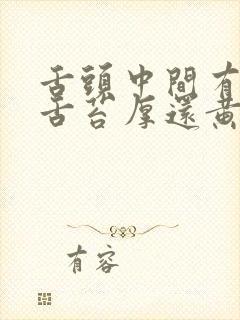 舌頭中間有
舌苔厚還黃
有容